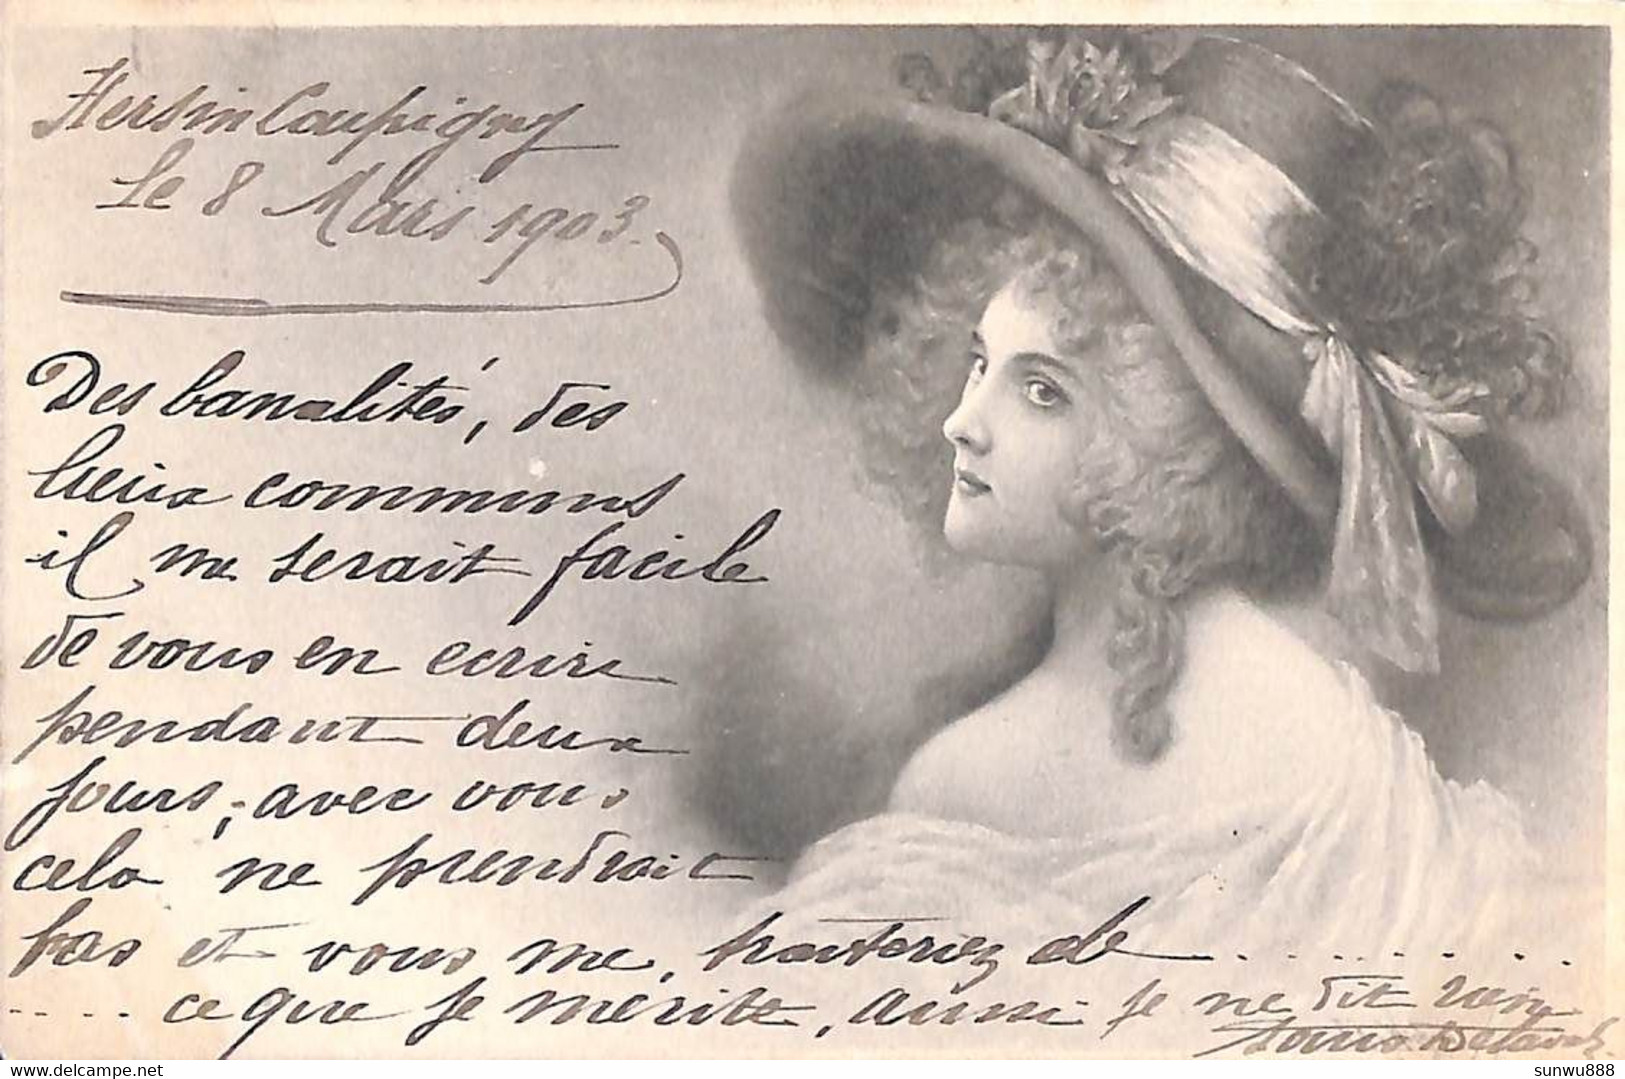 Hersin Coupigny
Le 8 Mars 1903.
Des banalités, des
lieux communs
il me serait facile
de vous en ecrire
pendant deux
jours, avec vous
cela ne prendrait
pas et vous me traiteriez de . . . . . . . .
. . . . ce que je mérite, aussi je ne dit rien
Louis
delcampe.net
sunwu888